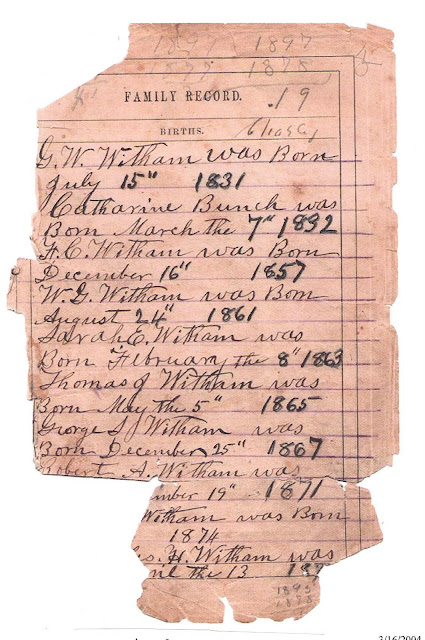 1897 1897
1878
FAMILY RECORD. .19
BIRTHS.
G. W. Witham was Born
July 15" 1831
Catharine Bunch was
Born March the 7" 1832
F. C. Witham was Born
December 16" 1857
W. G. Witham was Born
August 24" 1861
Sarah E. Witham was
Born February the 8" 1863
Thomas J Witham was
Born May the 5" 1865
George S Witham was
Born December 25" 1867
Robert A. Witham was
mber 19" 1871
Witham was Born
1874
H. Witham was
ril the 13
1895
1878
3/16/2004